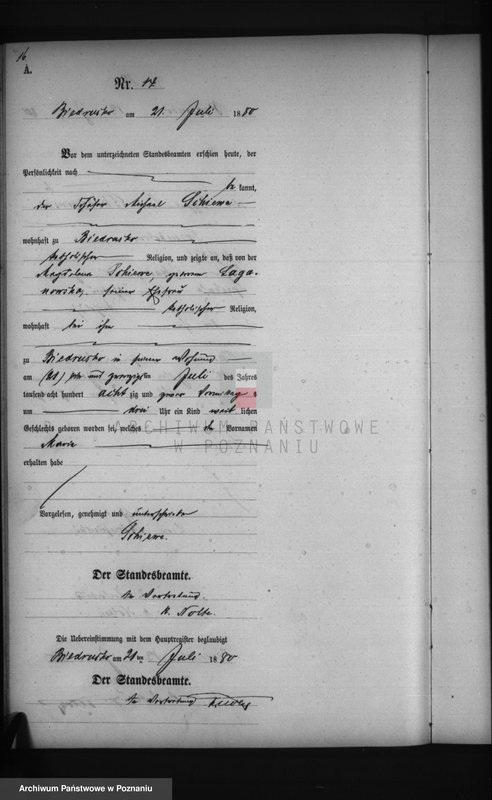 16.
A.
Nr. 17
Biedrusko am 21. Juli 1880
Vor dem unterzeichneten Standesbeamten erschien heute, der
Persönlichkeit nach
be kannt,
der Schäfer Michael Schiewe
wohnhaft zu Biedrusko
katholischer Religion, und zeigte an, daß von der
Magdalena Schiewe geborene
seiner Ehefrau
katholischer Religion,
wohnhaft bei ihm
zu Biedrusko in seiner Wohnung
am (21) ein und zwanzigsten Juli des Jahres
tausend acht hundert acht zig und zwar Vormittag s
um drei Uhr ein Kind weib lichen
Geschlechts geboren worden sei, welches Vornamen
Maria
erhalten habe
Vorgelesen, genehmigt und unterschrieben
Schiewe.
Der Standesbeamte.
In Vertretung.
K. Nolte.
Die Uebereinstimmung mit dem Hauptregister beglaubigt
Biedrusko am 21 ten Juli 1880
Der Standesbeamte.
In Vertretung K. Nolte
ARCHIWUM PAŃSTWOWE
W POZNANIU
Archiwum Państwowe w Poznaniu